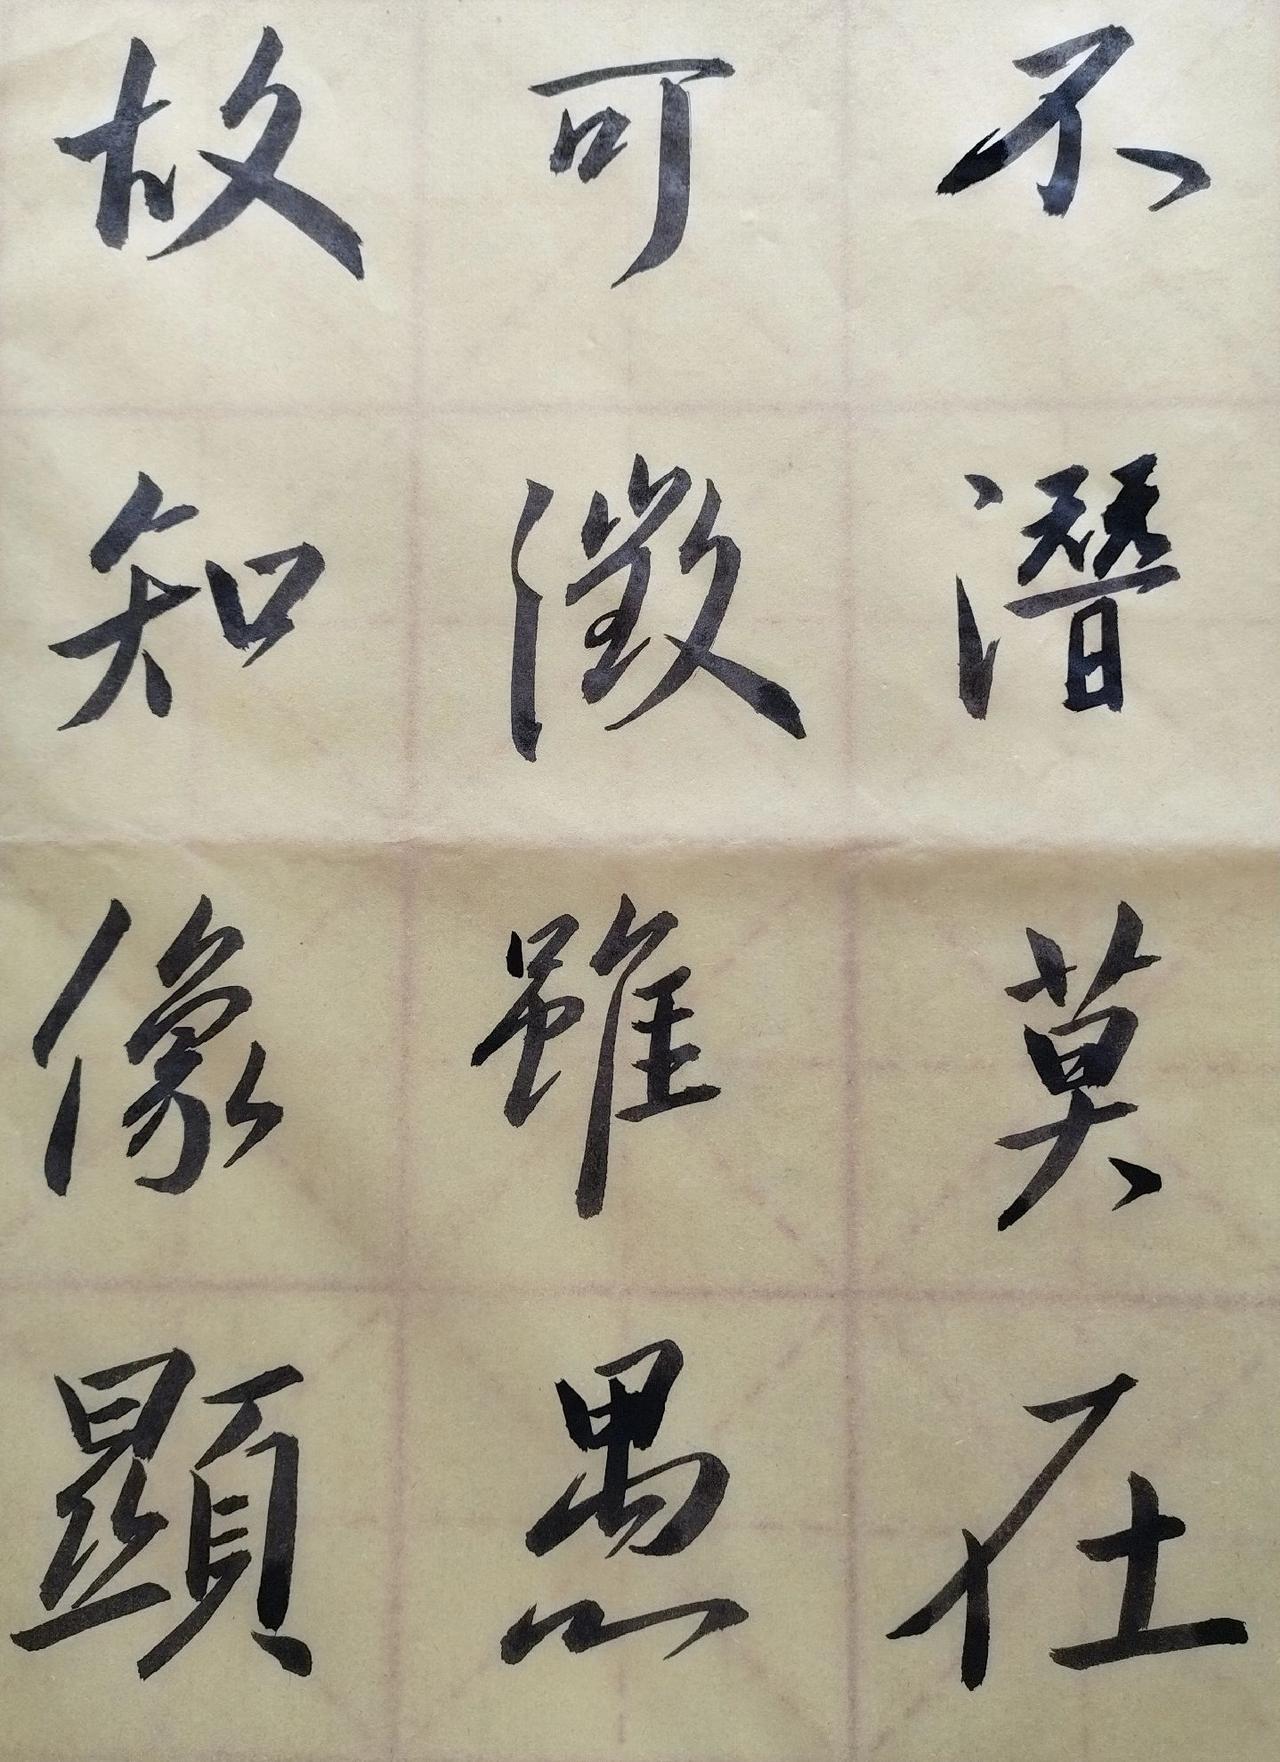 故知像顯
可徵雖愚
不潛莫在